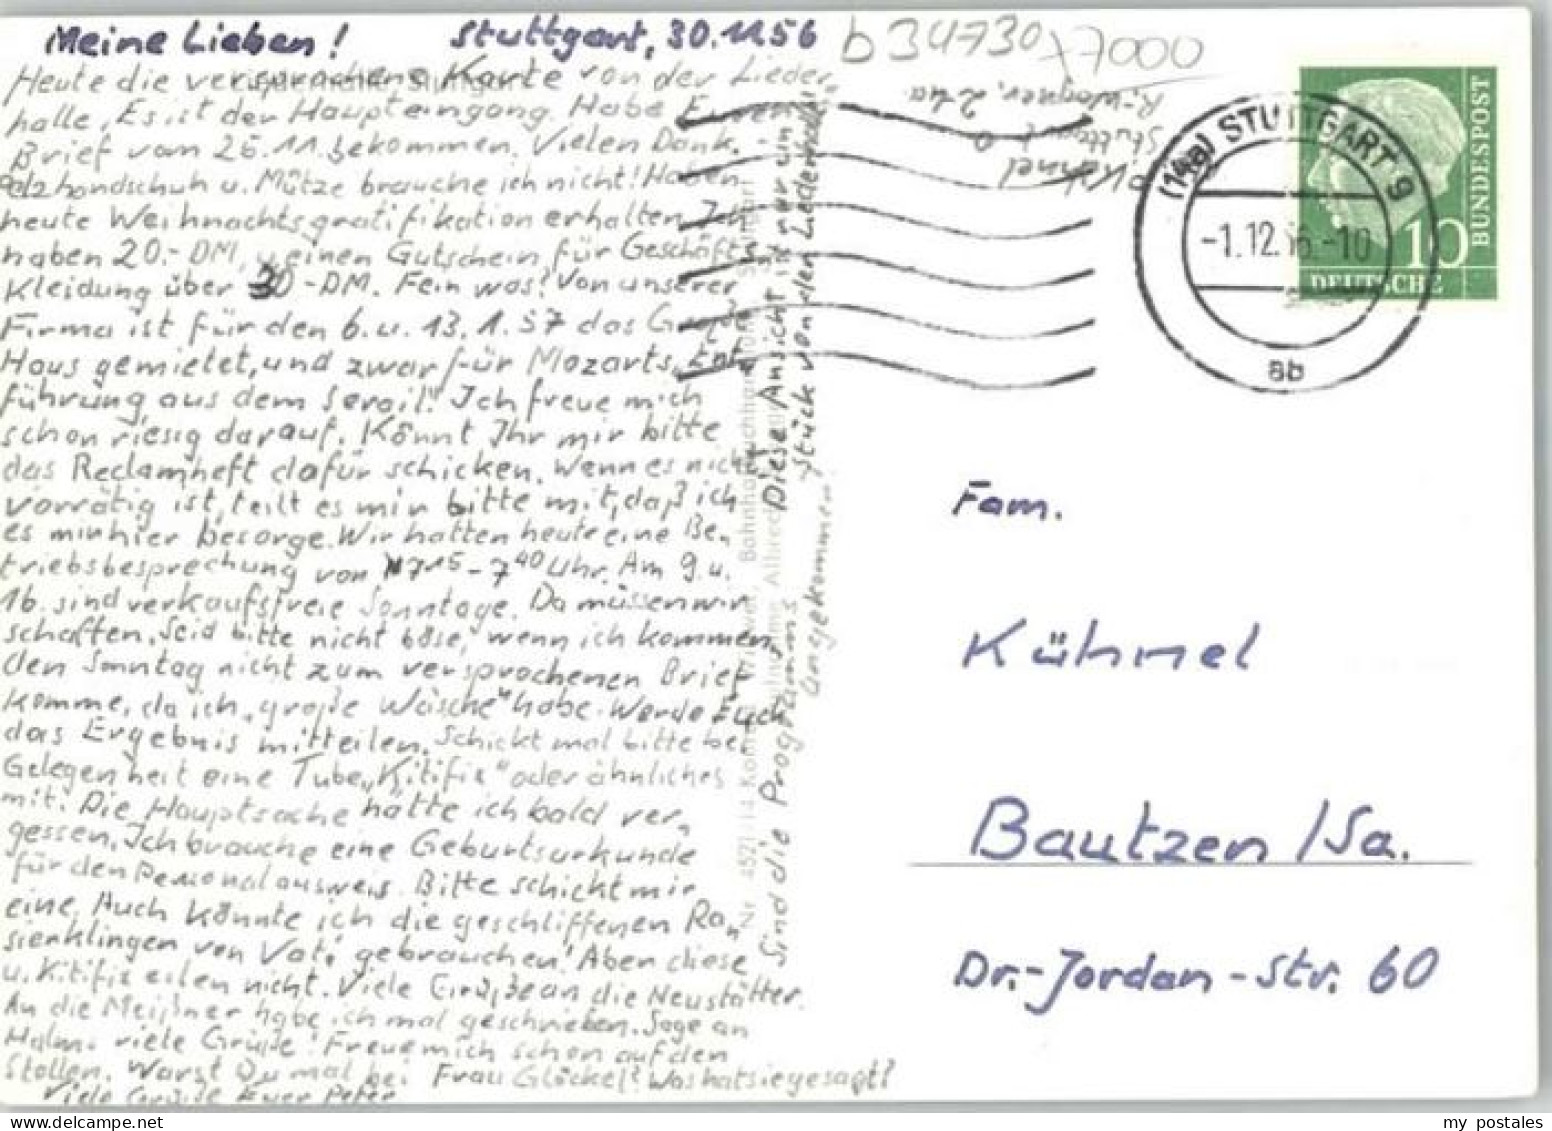 Meine Lieben! Stuttgart, 30.11.56
Heute die versprochene Karte von der Lieder-
halle. Es ist der Haupteingang. Habe Euren
Brief vom 26.11. bekommen. Vielen Dank.
Pelzhandschuh u. Mütze brauche ich nicht! Haben
heute Weihnachtsgratifikation erhalten. Ich
haben 20.- DM, u. einen Gutschein für Geschäfts-
Kleidung über 30.-DM. Fein was! Von unserer
Firma ist für den 6. u. 13.1.57 das Große
Haus gemietet, und zwar für Mozarts „Ent-
führung aus dem Serail". Ich freue mich
schon riesig darauf. Könnt Ihr mir bitte
das Reclamheft dafür schicken. Wenn es nicht
vorrätig ist, teilt es mir bitte mit, daß ich
es mir hier besorge. Wir hatten heute eine Be-
triebsbesprechung von 7 15 - 7 40 Uhr. Am 9. u.
16. sind verkaufsfreie Sonntage. Da müssen wir
schaffen. Seid bitte nicht böse, wenn ich kommen-
den Sonntag nicht zum versprochenen Brief
komme, da ich „große Wäsche" habe. Werde Euch
das Ergebnis mitteilen. Schickt mal bitte bei
Gelegenheit eine Tube „Kitifix" oder ähnliches
mit. Die Hauptsache hätte ich bald ver-
gessen. Ich brauche eine Geburtsurkunde
für den Personalausweis. Bitte schickt mir
eine. Auch könnte ich die geschliffenen Ra-
sierklingen von Vati gebrauchen! Aber diese
u. Kitifix eilen nicht. Viele Grüße an die Neustätter.
An die Meißner habe ich mal geschrieben. Sage an
viele Grüße! Freue mich schon auf den
Stollen. Warst Du mal bei Frau Glöckel? Was hat sie gesagt?
Viele Grüße Euer Peter
Diese Ansicht ist nur ein
Stück von der Liederhalle
Sind die Programms
angekommen?
b 34730
x7000
Kühnel
Stuttgart 0
R.-Wagner.
(14a) STUTTGART 9
-1.12.56.-10
ab
10
DEUTSCHE
BUNDESPOST
Fam.
Kühnel
Bautzen /Sa.
Dr.-Jordan-Str. 60
my postales